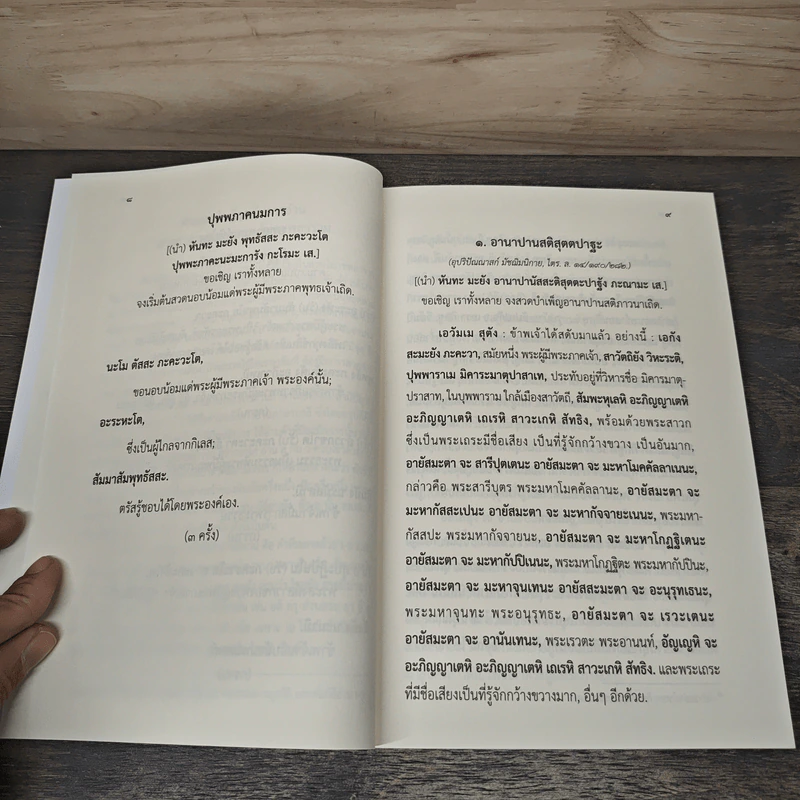 ๘
ปุพพภาคนมการ
[(นำ) หันทะ มะยัง พุทธัสสะ ภะคะวะโต
ปุพพะภาคะนะมะการัง กะโรมะ เส.]
ขอเชิญ เราทั้งหลาย
จงเริ่มต้นสวดนอบน้อมแด่พระผู้มีพระภาคพุทธเจ้าเถิด.
นะโม ตัสสะ ภะคะวะโต,
ขอนอบน้อมแด่พระผู้มีพระภาคเจ้า พระองค์นั้น;
อะระหะโต,
ซึ่งเป็นผู้ไกลจากกิเลส;
สัมมาสัมพุทธัสสะ.
ตรัสรู้ชอบได้โดยพระองค์เอง.
(๓ ครั้ง)
๙
๑. อานาปานสติสุตตปาฐะ
(อุปริปัณณาสก์ มัชฌิมนิกาย, ไตร. ล. ๑๔/๑๙๐/๒๘๒.)
[(นำ) หันทะ มะยัง อานาปานัสสะติสุตตะปาฐัง ภะณามะ เส.]
ขอเชิญ เราทั้งหลาย จงสวดบำเพ็ญอานาปานสติภาวนาเถิด.
เอวัมเม สุตัง : ข้าพเจ้าได้สดับมาแล้ว อย่างนี้ : เอกัง
สะมะยัง ภะคะวา, สมัยหนึ่ง พระผู้มีพระภาคเจ้า, สาวัตถิยัง วิหะระติ,
ปุพพาราเม มิคาระมาตุปาสาเท, ประทับอยู่ที่วิหารชื่อ มิคารมาตุ-
ปราสาท, ในบุพพาราม ใกล้เมืองสาวัตถี, สัมพะหุเลหิ อะภิญญาเตหิ
อะภิญญาเตหิ เถเรหิ สาวะเกหิ สัทธิง, พร้อมด้วยพระสาวก
ซึ่งเป็นพระเถระมีชื่อเสียง เป็นที่รู้จักกว้างขวาง เป็นอันมาก,
อายัสมะตา จะ สารีปุตเตนะ อายัสมะตา จะ มะหาโมคคัลลาเนนะ,
กล่าวคือ พระสารีบุตร พระมหาโมคคัลลานะ, อายัสมะตา จะ
มะหากัสสะเปนะ อายัสมะตา จะ มะหากัจจายะเนนะ, พระมหา-
กัสสปะ พระมหากัจจายนะ, อายัสมะตา จะ มะหาโกฏฐิเตนะ
อายัสมะตา จะ มะหากัปปิเนนะ, พระมหาโกฏฐิตะ พระมหากัปปินะ,
อายัสมะตา จะ มะหาจุนเทนะ อายัสสะมะตา จะ อะนุรุทเธนะ,
พระมหาจุนทะ พระอนุรุทธะ, อายัสมะตา จะ เรวะเตนะ
อายัสมะตา จะ อานันเทนะ, พระเรวตะ พระอานนท์, อัญเญหิ จะ
อะภิญญาเตหิ อะภิญญาเตหิ เถเรหิ สาวะเกหิ สัทธิง. และพระเถระ
ที่มีชื่อเสียงเป็นที่รู้จักกว้างขวางมาก, อื่นๆ อีกด้วย.